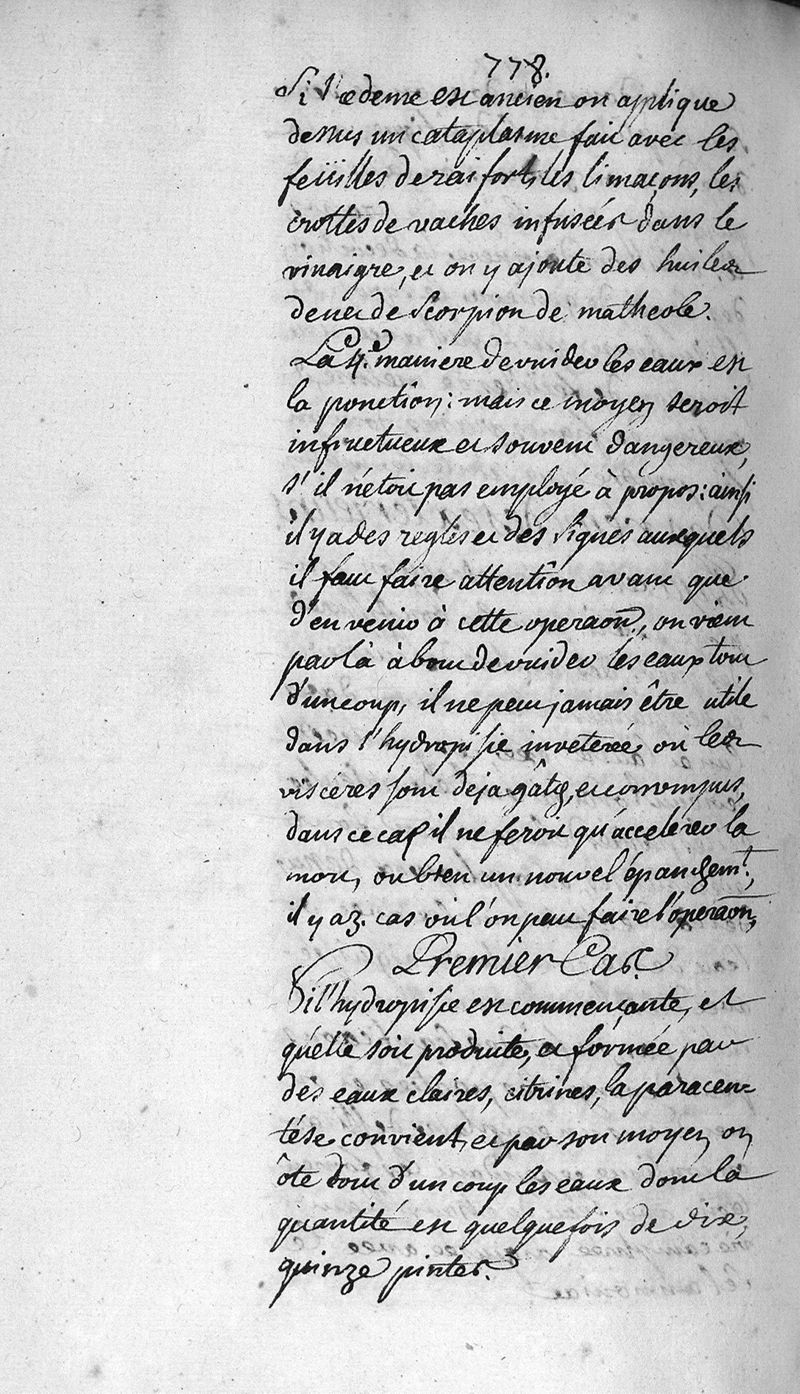 778.
Si l'œdeme est ancien on applique
dessus un cataplasme fait avec les
feüilles de raifort, les limaçons, les
crottes de vaches infusées dans le
vinaigre, et on y ajoute des huiles
de ver de Scorpion de matheole.
La 4.e maniere de vuider les eaux est
la ponction: mais ce moyen seroit
infructueux et souvent dangereux,
s'il n'étoit pas employé à propos: ainsi
il y a des regles et des signes auxquels
il faut faire attention avant que
d'en venir à cette operaon, on vient
par là à bout de vuider les eaux tout
d'un coup, il ne peut jamais être utile
dans l'hydropisie inveterée où les
viscéres sont deja gâtés, et corrompus,
dans ce cas il ne feroit qu'accelerer la
mort, ou bien un nouvel épanchemt,
il y a 3. cas où l'on peut faire l'operaon,
Premier Cas.
Si l'hydropisie est commençante, et
qu'elle soit produite, et formée par
des eaux claires, citrines, la paracen
tése convient, et par son moyen on
ôte tout d'un coup les eaux dont la
quantité est quelquefois de dix,
quinze pintes.